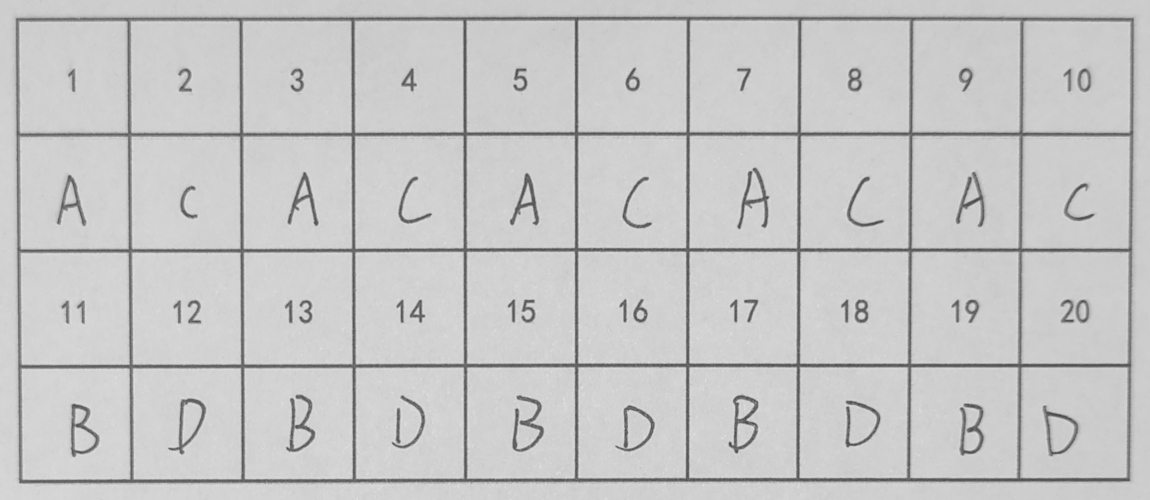 1 2 3 4 5 6 7 8 9 10
A C A C A C A C A C
11 12 13 14 15 16 17 18 19 20
B D B D B D B D B D